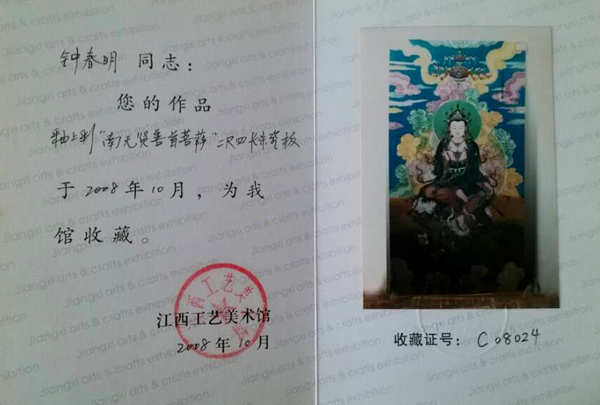 钟春明 同志：
您的作品
釉上彩"南无贤善首菩萨"二尺四长条瓷板
于2008年10月，为我
馆收藏。
江西工艺美术馆
江西工艺美术馆
2008年10月
收藏证号：C08024
Jiangxi arts & crafts exhibition